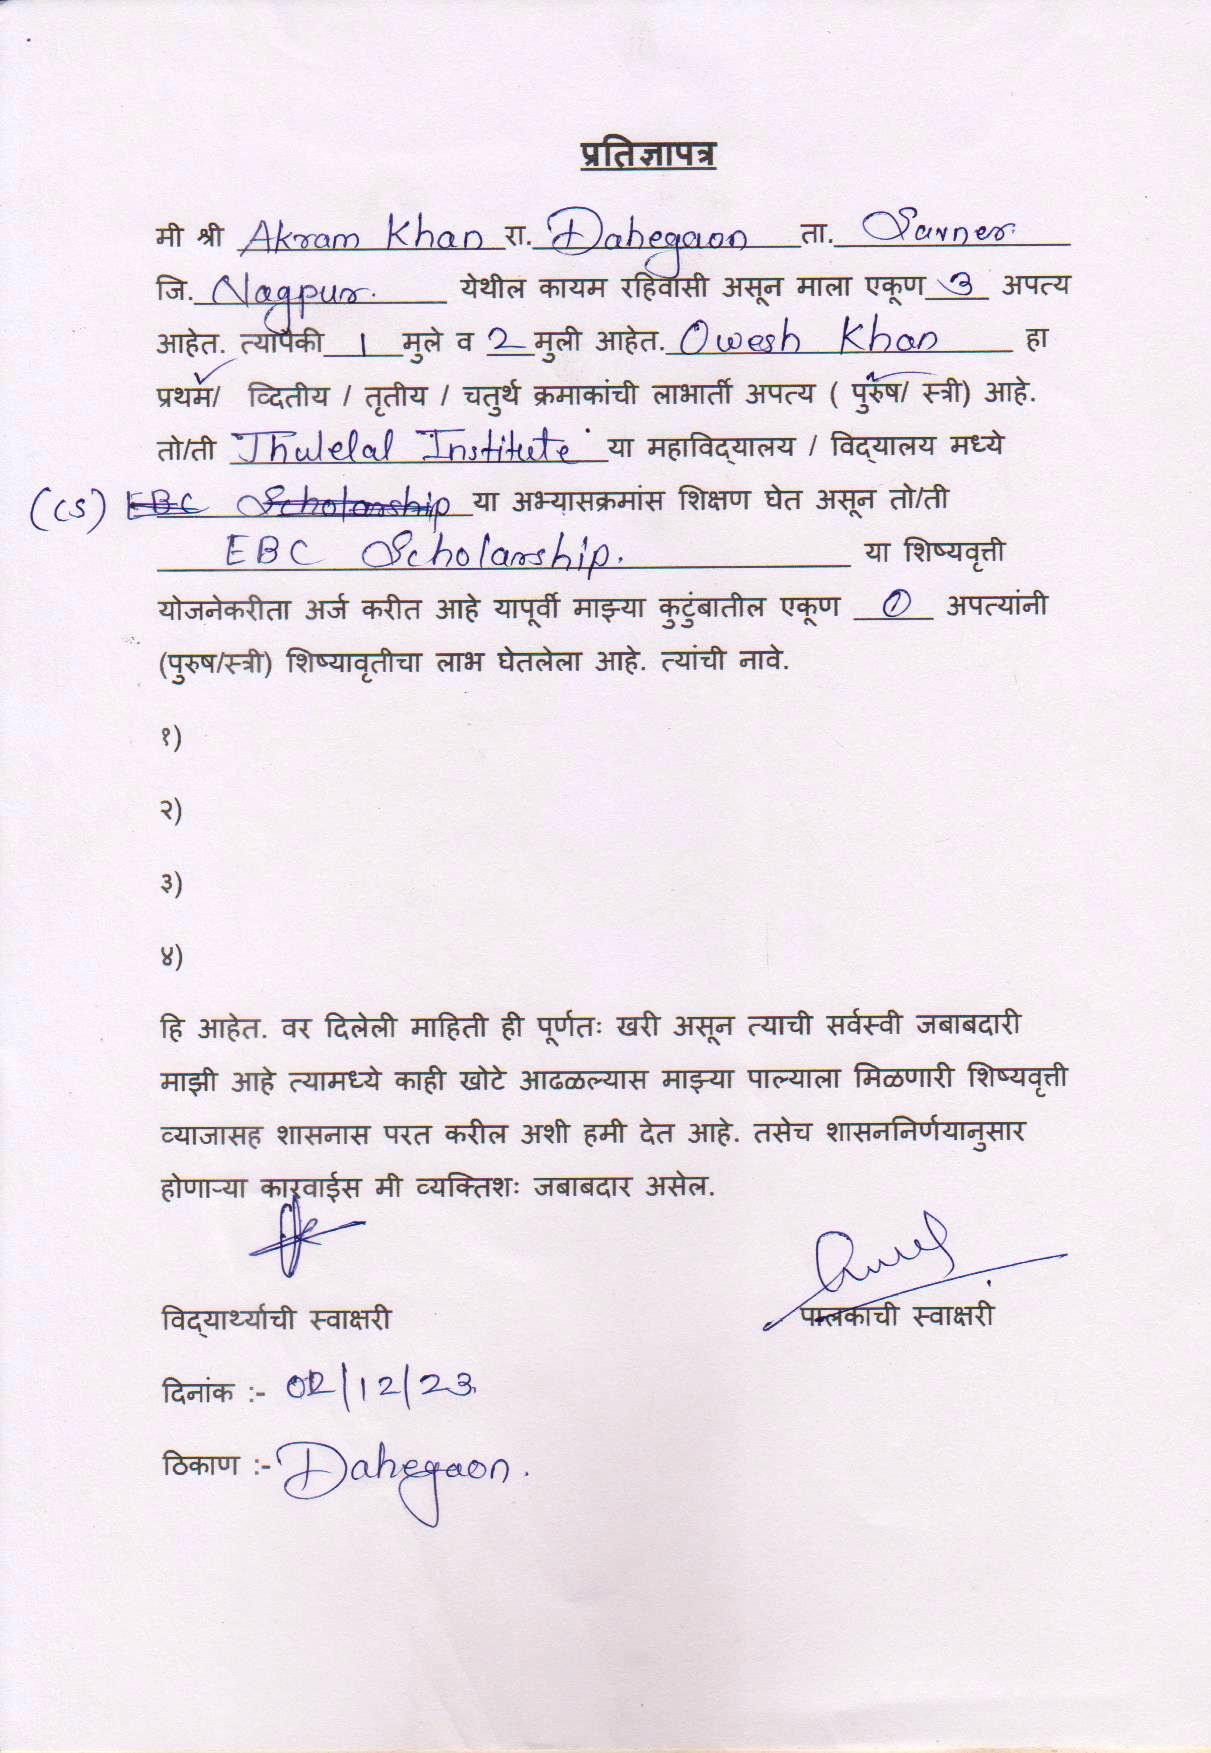 प्रतिज्ञापत्र
मी श्री Akram Khan रा. Dahegaon ता. Savner.
जि. Nagpur. येथील कायम रहिवासी असून माला एकूण 3 अपत्य
आहेत. त्यापैकी 1 मुले व 2 मुली आहेत. Owesh Khan हा
प्रथम/ व्दितीय / तृतीय / चतुर्थ क्रमाकांची लाभार्ती अपत्य ( पुरुष/ स्त्री) आहे.
तो/ती Jhulelal Institute या महाविद्यालय / विद्यालय मध्ये
(CS) EBC Scholarship या अभ्यासक्रमांस शिक्षण घेत असून तो/ती
EBC Scholarship. या शिष्यवृत्ती
योजनेकरीता अर्ज करीत आहे यापूर्वी माझ्या कुटुंबातील एकूण अपत्यांनी
(पुरुष/स्त्री) शिष्यावृतीचा लाभ घेतलेला आहे. त्यांची नावे.
१)
२)
३)
४)
हि आहेत. वर दिलेली माहिती ही पूर्णतः खरी असून त्याची सर्वस्वी जबाबदारी
माझी आहे त्यामध्ये काही खोटे आढळल्यास माझ्या पाल्याला मिळणारी शिष्यवृत्ती
व्याजासह शासनास परत करील अशी हमी देत आहे. तसेच शासननिर्णयानुसार
होणाऱ्या कारवाईस मी व्यक्तिशः जबाबदार असेल.
विद्यार्थ्याची स्वाक्षरी
पालकाची स्वाक्षरी
दिनांक :- 02/12/23
ठिकाण :- Dahegaon.